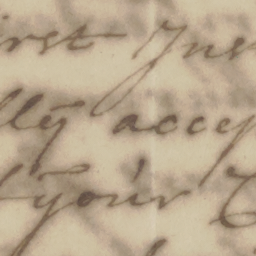 irst Jus
lly accep
f your C